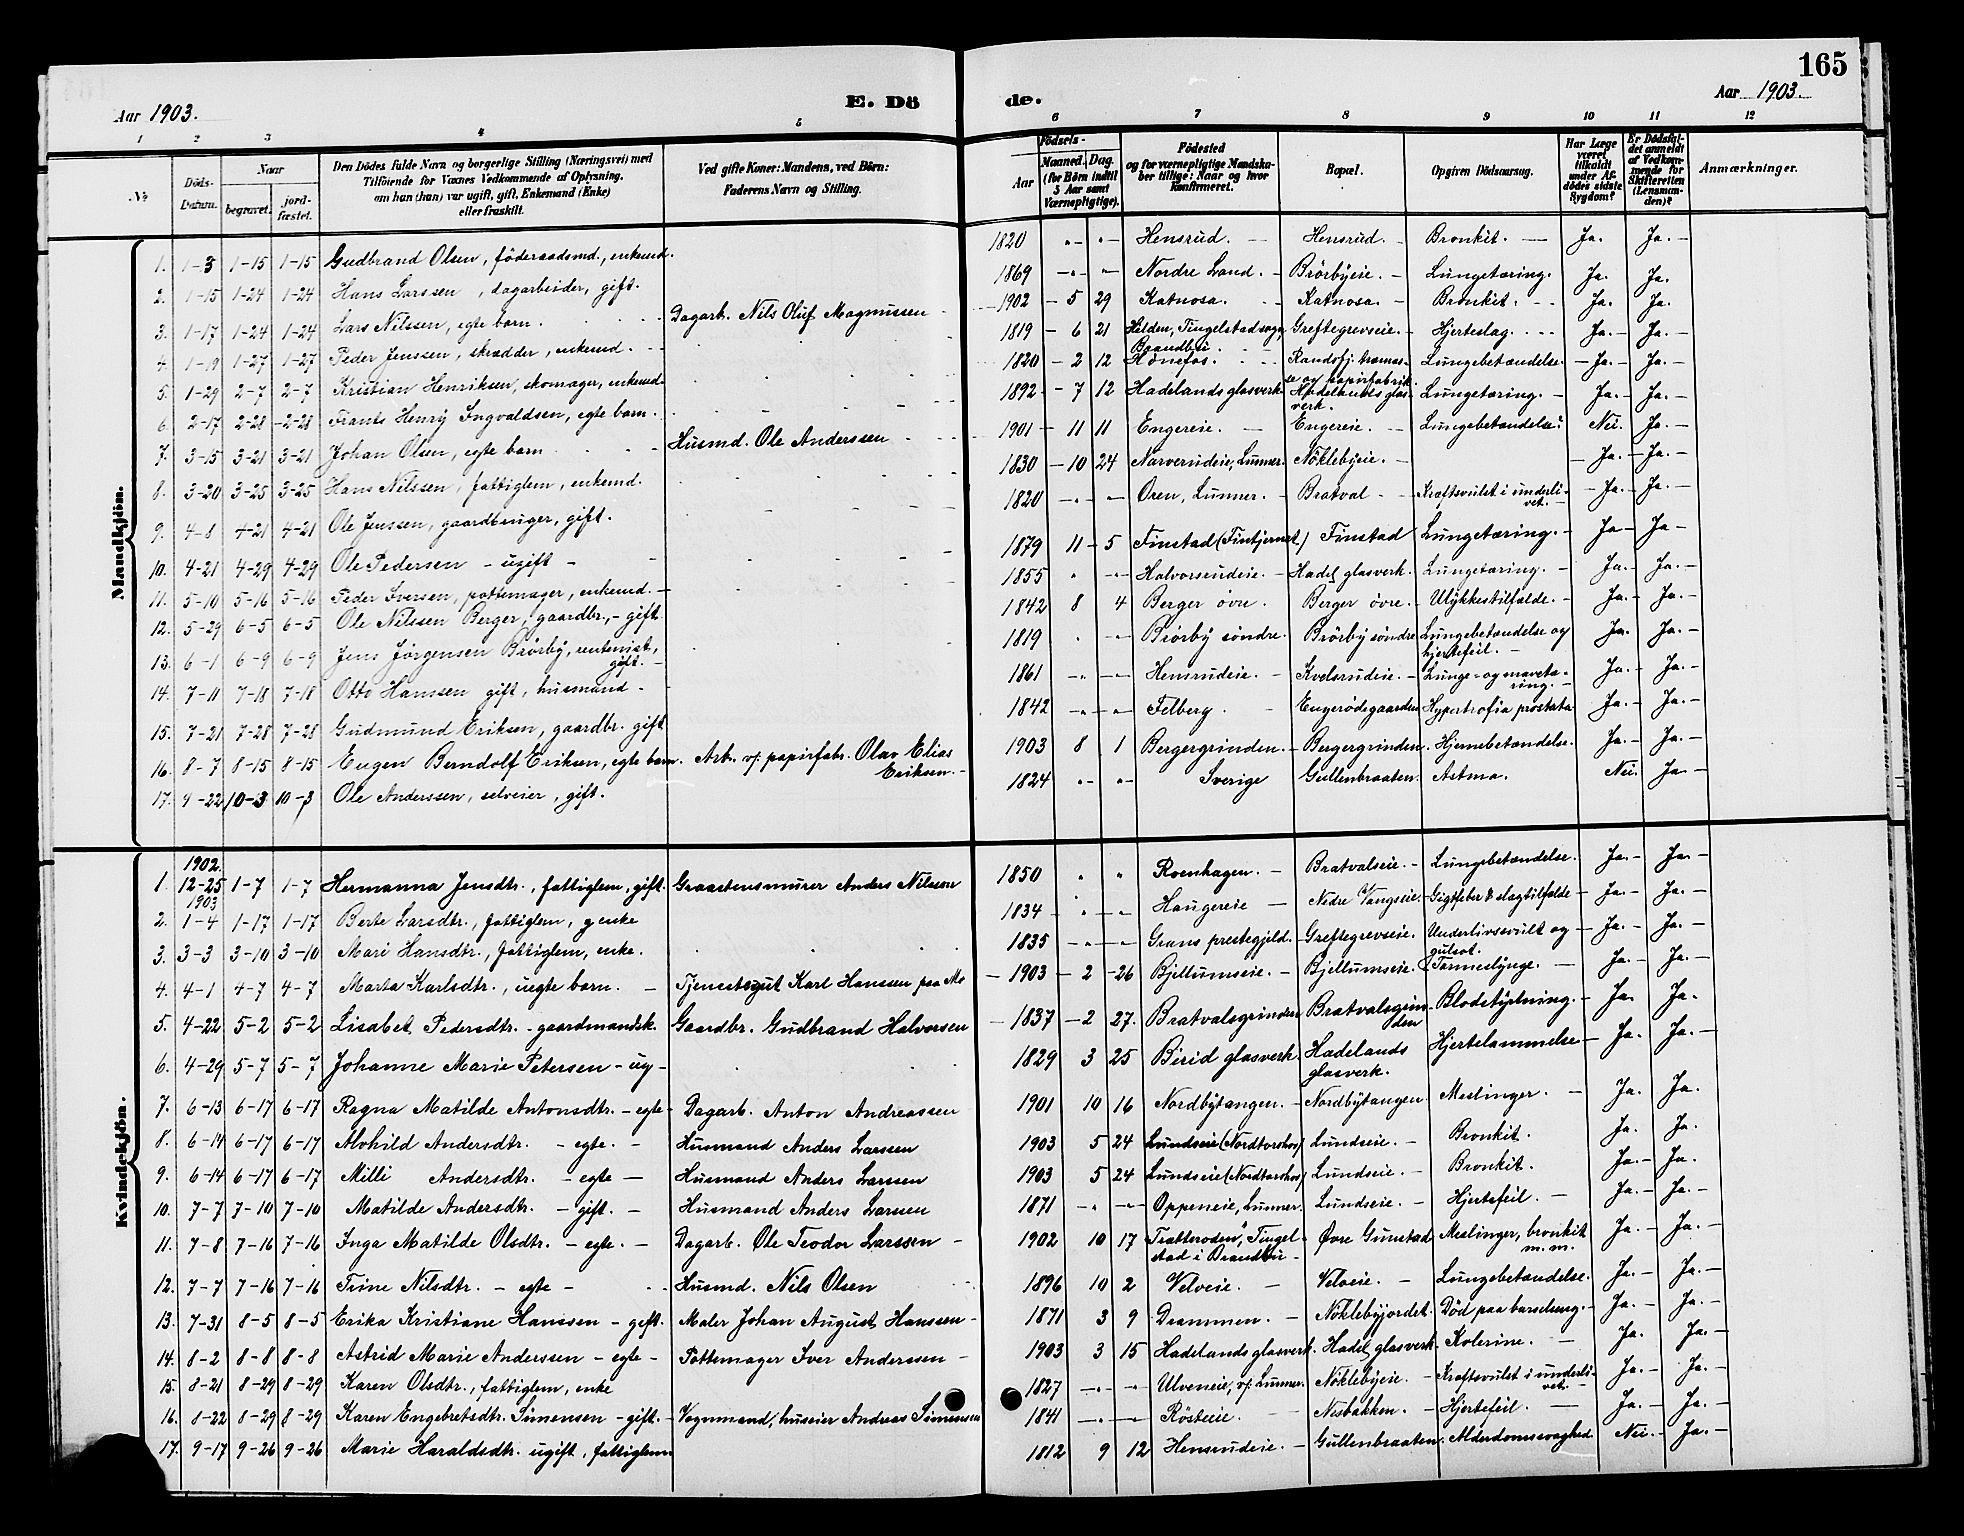 165
Aar 1903.
E. Dö
de.
Aar 1903.
1 2 3 4 5 6 7 8 9 10 11 12
No
Döds-Datum.
Naar
begravet.
jord-fæstet.
Den Dödes fulde Navn og borgerlige Stilling (Næringsvei) med
Tilföiende for Voxnes Vedkommende af Oplysning,
om han (hun) var ugift, gift, Enkemand (Enke)
eller fraskilt.
Ved gifte Koner: Mandens, ved Börn:
Faderens Navn og Stilling.
Födsels-
Aar
Maaned. Dag.
(for Börn indtil
5 Aar samt
Værnepligtige).
Födested
og for værnepligtige Mandska-
ber tillige: Naar og hvor
Konfirmeret.
Bopæl.
Opgiven Dödsaarsag.
Har Læge
været
tilkaldt
under Af-
dödes sidste
Sygdom?
Er Dödsfal-
det anmeldt
af Vedkom-
mende for
Skifteretten
(Lensman-
den)?
Anmærkninger.
Mandkjön.
1. 1-3 1-15 1-15 Gudbrand Olsen, föderaadsmd., enkemd. 1820 " " Hensrud. Hensrud. Bronkit. Ja. Ja.
2. 1-15 1-24 1-24 Hans Larssen, dagarbeider, gift. 1869 " " Nordre Land. Brörbyeie. Lungetæring. Ja. Ja.
3. 1-17 1-24 1-24 Lars Nilssen, egte barn. Dagarb. Nils Oluf Magnussen 1902 5 29 Katnosa. Katnosa. Bronkit. Ja. Ja.
4. 1-19 1-27 1-27 Peder Jenssen, skrædder, enkemd. 1819 6 21 Helden, Tingelstad sogn, Brandbu. Greftegrevseie. Hjerteslag. Ja. Ja.
5. 1-29 2-7 2-7 Kristian Henriksen, skomager, enkemd. 1820 2 12 Hönefos. Randsfj. træmas-se og papirfabrik. Lungebetændelse Ja. Ja.
6. 2-17 2-28 2-28 Frants Henry Ingvaldsen, egte barn. 1892 7 12 Hadelands glasverk Hadelands glas-verk. Lungetæring. Ja. Ja.
7. 3-15 3-21 3-21 Johan Olsen, egte barn Husmd. Ole Anderssen 1901 11 11 Engereie. Engereie. Lungebetændelse? Nei. Ja.
8. 3-20 3-25 3-25 Hans Nilssen, fattiglem, enkemd. 1830 10 24 Narverudeie, Lunner. Nöklebyeie. Ja. Ja.
9. 4-8 4-21 4-21 Ole Jenssen, gaardbruger, gift. 1820 " " Oren, Lunner. Bratval Kræftsvulst i underli-vet. Ja. Ja.
10. 4-21 4-29 4-29 Ole Pedersen - ugift - 1879 11 5 Finstad (Fintjernet) Finstad Lungetæring. Ja Ja
11. 5-10 5-16 5-16 Peder Iversen, pottemager, enkemd. 1855 " " Halvorsrudeie. Hadel. glasverk. Lungetæring. Ja. Ja.
12. 5-29 6-5 6-5 Ole Nilssen Berger, gaardbr., - gift. 1842 8 4 Berger övre. Berger övre. Ulykkestilfælde. Ja. Ja.
13. 6-1 6-9 6-9 Jens Jörgensen Brörby, rentenist, gift. 1819 " " Brörby söndre. Brörby söndre Lungebetændelse og hjertefeil. Ja. Ja.
14. 7-11 7-18 7-18 Otto Hanssen gift, husmand. 1861 " " Hensrudeie. Kvelsrudeie. Lunge- og maveta-ring. Ja. Ja.
15. 7-21 7-28 7-28 Gudmund Eriksen, gaardbr. gift. 1842 " " Felberg. Engerödegaarden Hypertrofia prostata Ja. Ja.
16. 8-7 8-15 8-15 Eugen Berndolf Eriksen, egte barn. Arb. v/ papirfabr. Olav Elias Eriksen. 1903 8 1 Bergergrinden. Bergergrinden. Hjernebetændelse. Ja. Ja.
17. 9-22 10-3 10-3 Ole Anderssen, selveier, gift. 1824 " " Sverige Gullenbraaten. Astma. Nei. Ja.
Kvindekjön.
1902.
1. 12-25 1-7 1-7 Hermanna Jensdtr., fattiglem, gift. Graastensmurer Anders Nilssen 1850 " " Roenhagen. Bratvalseie. Lungebetændelse. Ja. Ja.
1903
2. 1-4 1-17 1-17 Berte Larsdtr., fattiglem, enke 1834 " " Haugereie Nedre Vangseie. Gigtfeber & slagtilfælde Ja. Ja.
3. 3-3 3-10 3-10 Mari Hansdtr., fattiglem, enke. 1835 " " Grans prestegjeld. Greftegrevseie. Underlivssvulst og gulsot. Ja. Ja.
4. 4-1 4-7 4-7 Marta Karlsdtr., uegte barn. Tjenestegut Karl Hanssen paa Mo 1903 2 26 Bjellumseie. Bjellumseie. Tarmeslynge. Ja. Ja.
5. 4-22 5-2 5-2 Lisabet Pedersdtr. - gaardmandsk. Gaardbr. Gudbrand Halvorsen 1837 2 27. Bratvalsgrinden Bratvalsgrin-den Blodstyrtning. Ja. Ja.
6. 4-29 5-7 5-7 Johanne Marie Petersen - ug - 1829 3 25 Birid glasverk. Hadelands glasverk. Hjertelammelse Ja. Ja.
7. 6-13 6-17 6-17 Ragna Matilde Antonsdtr. - egte - Dagarb. Anton Andreassen 1901 10 16 Nordbytangen. Nordbytangen Meslinger. Ja. Ja.
8. 6-14 6-17 6-17 Alvhild Andersdtr. - egte. - Husmand Anders Larssen 1903 5 24 Lundseie (Nordtorshov) Lundseie. Bronkit. Ja. Ja.
9. 6-14 6-17 6-17 Milli Andersdtr. - egte - Husmand Anders Larssen 1903 5 24 Lundseie (Nordtorshov) Lundseie. Bronkit. Ja. Ja.
10. 7-7 7-10 7-10 Matilde Andersdtr. - gift. - Husmand Anders Larssen 1871 " " Oppeneie, Lunner. Lundseie. Hjertefeil. Ja. Ja.
11. 7-8 7-16 7-16 Inga Matilde Olsdtr. - egte. - Dagarb. Ole Teodor Larssen 1902 10 17 Tratteroden, Tingel-stad i Brandbu Övre Gunstad Meslinger, bronkit m.m. Ja. Ja.
12. 7-7 7-16 7-16 Trine Nilsdtr. - egte - Husmd. Nils Olsen 1896 10 2 Velveie. Velveie. Lungebetændelse. Ja. Ja.
13. 7-31 8-5 8-5 Erika Kristiane Hanssen - gift. Maler Johan August Hanssen 1871 3 9 Drammen. Nöklebyjordet. Död paa barselseng. Ja. Ja.
14. 8-2 8-8 8-8 Astrid Marie Anderssen - egte - Pottemager Iver Anderssen 1903 3 15 Hadelands glasverk. Hadel. glasverk. Kolerine. Ja. Ja.
15. 8-21 8-29 8-29 Karen Olsdtr., fattiglem, enke 1827 " " Ulveneie, v/ Lunner. Nöklebyeie. Kræftsvulst i underli-vet. Ja. Ja.
16. 8-22 8-29 8-29 Karen Engebretsdtr. Simensen - gift. Vognmand, huseier Andreas Simensen 1841 " " Rösteie. Nesbakken. Hjertefeil. Ja. Ja.
17. 9-17 9-26 9-26 Marie Haraldsdtr. ugift, fattiglem 1812 9 12 Hensrudeie. Gullenbraaten. Alderdomssvaghed. Nei. Ja.